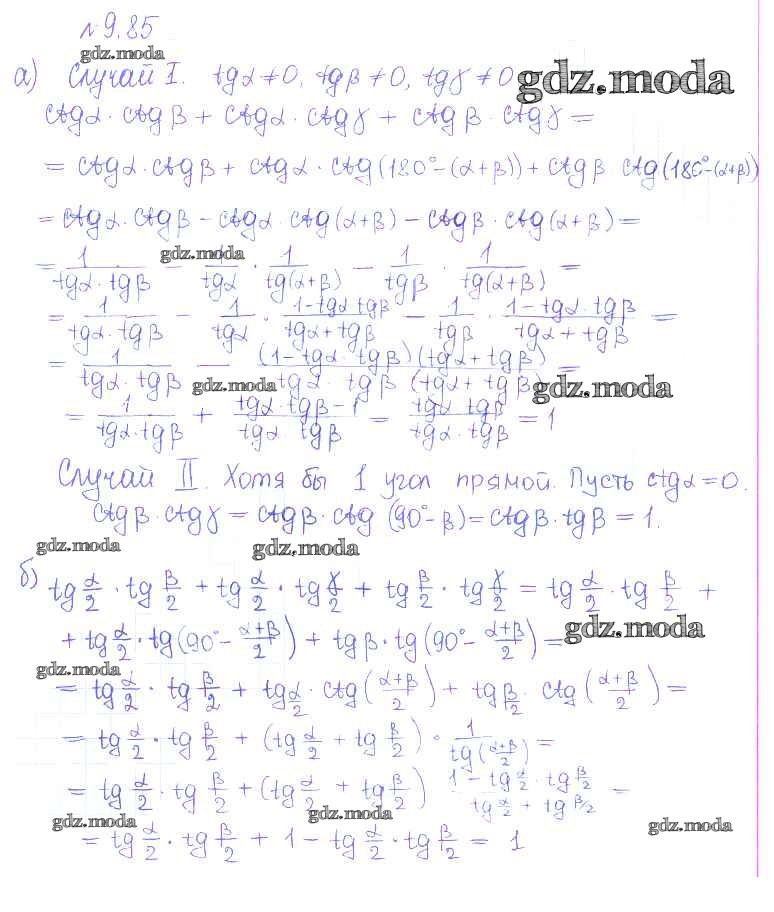 №9.85
gdz.moda
а) Случай I. tgα≠0, tgβ≠0, tgγ≠0
gdz.moda
ctgα·ctgβ + ctgα·ctgγ + ctgβ·ctgγ =
= ctgα·ctgβ + ctgα·ctg(180°-(α+β)) + ctgβ ctg(180°-(α+β))
= ctgα·ctgβ - ctgα·ctg(α+β) - ctgβ·ctg(α+β) =
gdz.moda
= 1/(tgα·tgβ) - 1/tgα · 1/tg(α+β) - 1/tgβ · 1/tg(α+β) =
= 1/(tgα·tgβ) - 1/tgα · (1-tgα tgβ)/(tgα+tgβ) - 1/tgβ · (1-tgα·tgβ)/(tgα+tgβ) =
= 1/(tgα·tgβ) - (1-tgα·tgβ)(tgα+tgβ)/(tgα·tgβ (tgα+tgβ)) =
gdz.moda
gdz.moda
= 1/(tgα·tgβ) + (tgα·tgβ-1)/(tgα·tgβ) = (tgα·tgβ)/(tgα·tgβ) = 1
Случай II. Хотя бы 1 угол прямой. Пусть ctgα=0.
ctgβ·ctgγ = ctgβ·ctg(90°-β) = ctgβ·tgβ = 1.
gdz.moda
gdz.moda
б) tg α/2 · tg β/2 + tg α/2 · tg γ/2 + tg β/2 · tg γ/2 = tg α/2 · tg β/2 +
+ tg α/2 · tg(90° - (α+β)/2) + tgβ·tg(90° - (α+β)/2) =
gdz.moda
gdz.moda
= tg α/2 · tg β/2 + tg α/2 · ctg((α+β)/2) + tg β/2 · ctg((α+β)/2) =
= tg α/2 · tg β/2 + (tg α/2 + tg β/2) · 1/tg((α+β)/2) =
= tg α/2 · tg β/2 + (tg α/2 + tg β/2) (1 - tg α/2 · tg β/2)/(tg α/2 + tg β/2) =
gdz.moda
gdz.moda
gdz.moda
= tg α/2 · tg β/2 + 1 - tg α/2 · tg β/2 = 1